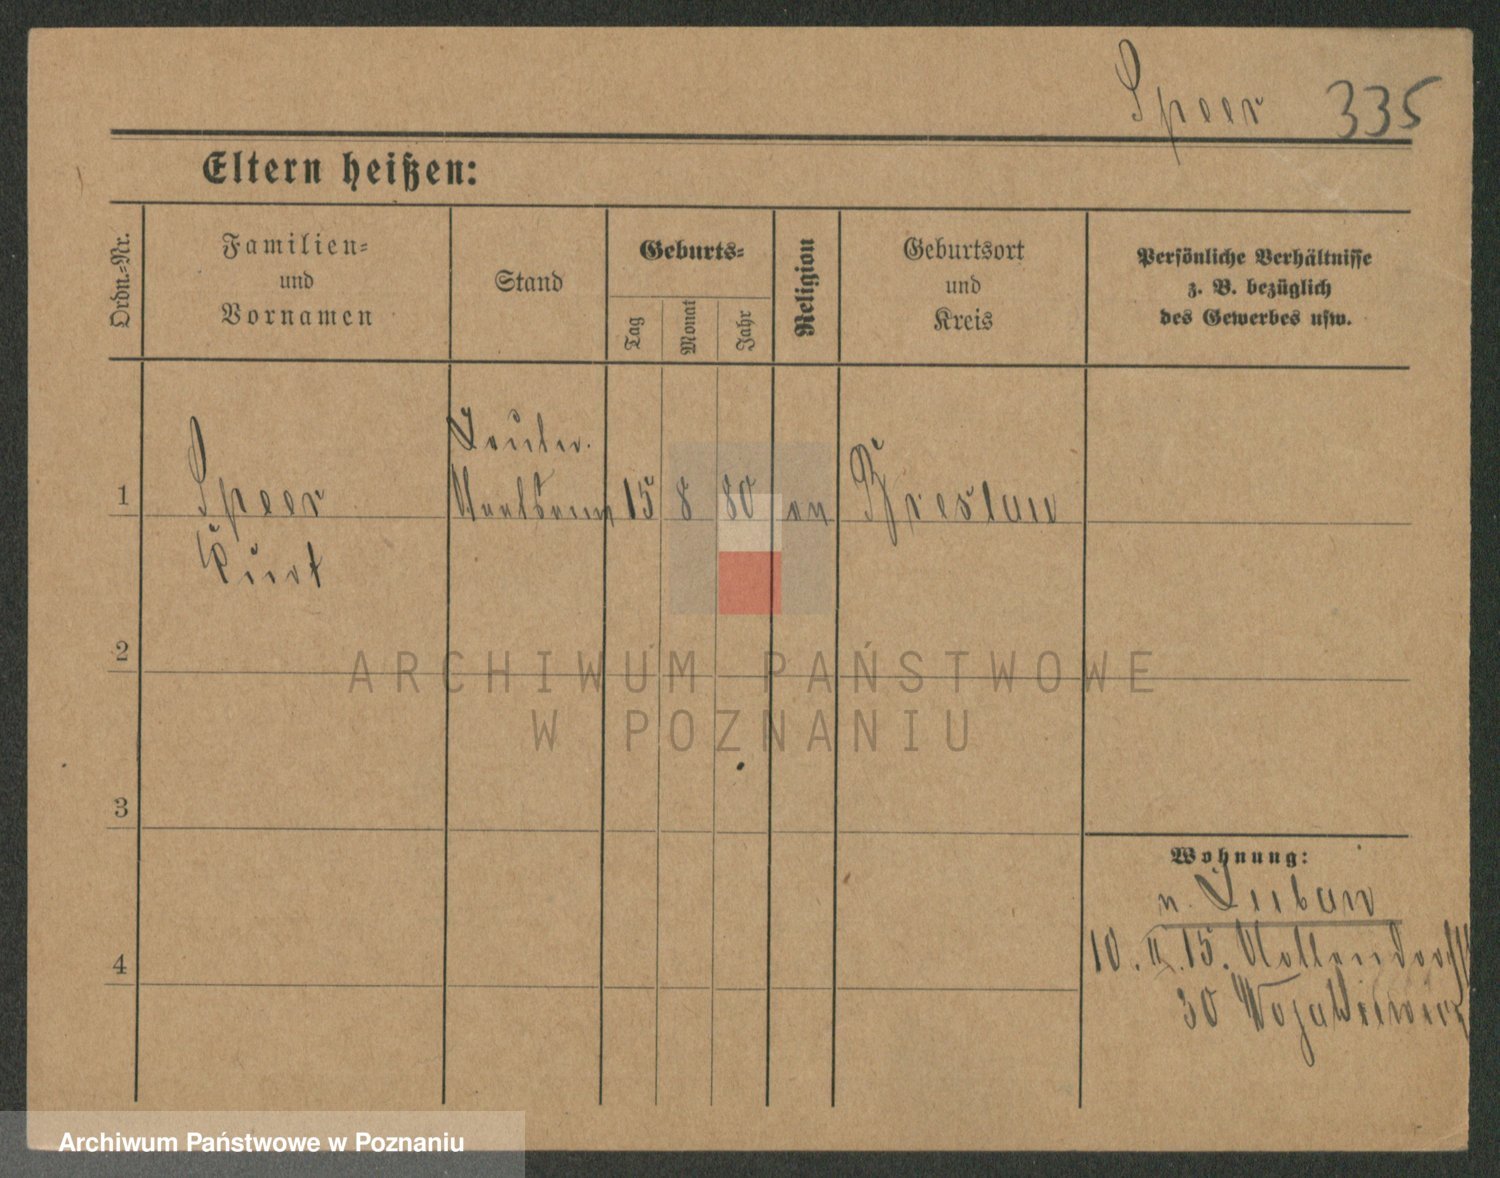 Speer 335
Eltern heißen:
Ordn.-Nr.
Familien-
und
Vornamen
Stand
Geburts-
Tag
Monat
Jahr
Religion
Geburtsort
und
Kreis
Persönliche Verhältnisse
z. B. bezüglich
des Gewerbes usw.
1
Speer
Kurt
Landw.
15
8
80
ev
Breslau
2
3
4
Wohnung:
v. Lieban
10. II. 15. Nollendorfstr
30
ARCHIWUM PAŃSTWOWE
W POZNANIU
Archiwum Państwowe w Poznaniu